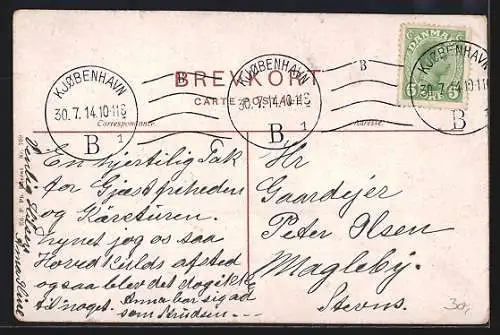 KJØBENHAVN
30.7.14.10-11F
B 1
BREVKORT
CARTE POSTALE
KJØBENHAVN
30.7.14.10-11F
B 1
B
DANMARK
5
KJØBENHAVN
30.7.14
B
Correspondance.
Adresse.
En hjertelig Tak
for Gjæstfriheden
og Køreturen.
jog os saa
Hoved Kulds afsted
og saa blev det dog ikke
til noget. Anna bar sig ad
som
Hr
Gaardejer
Peter Olsen
Magleby.
Stevns.
30,